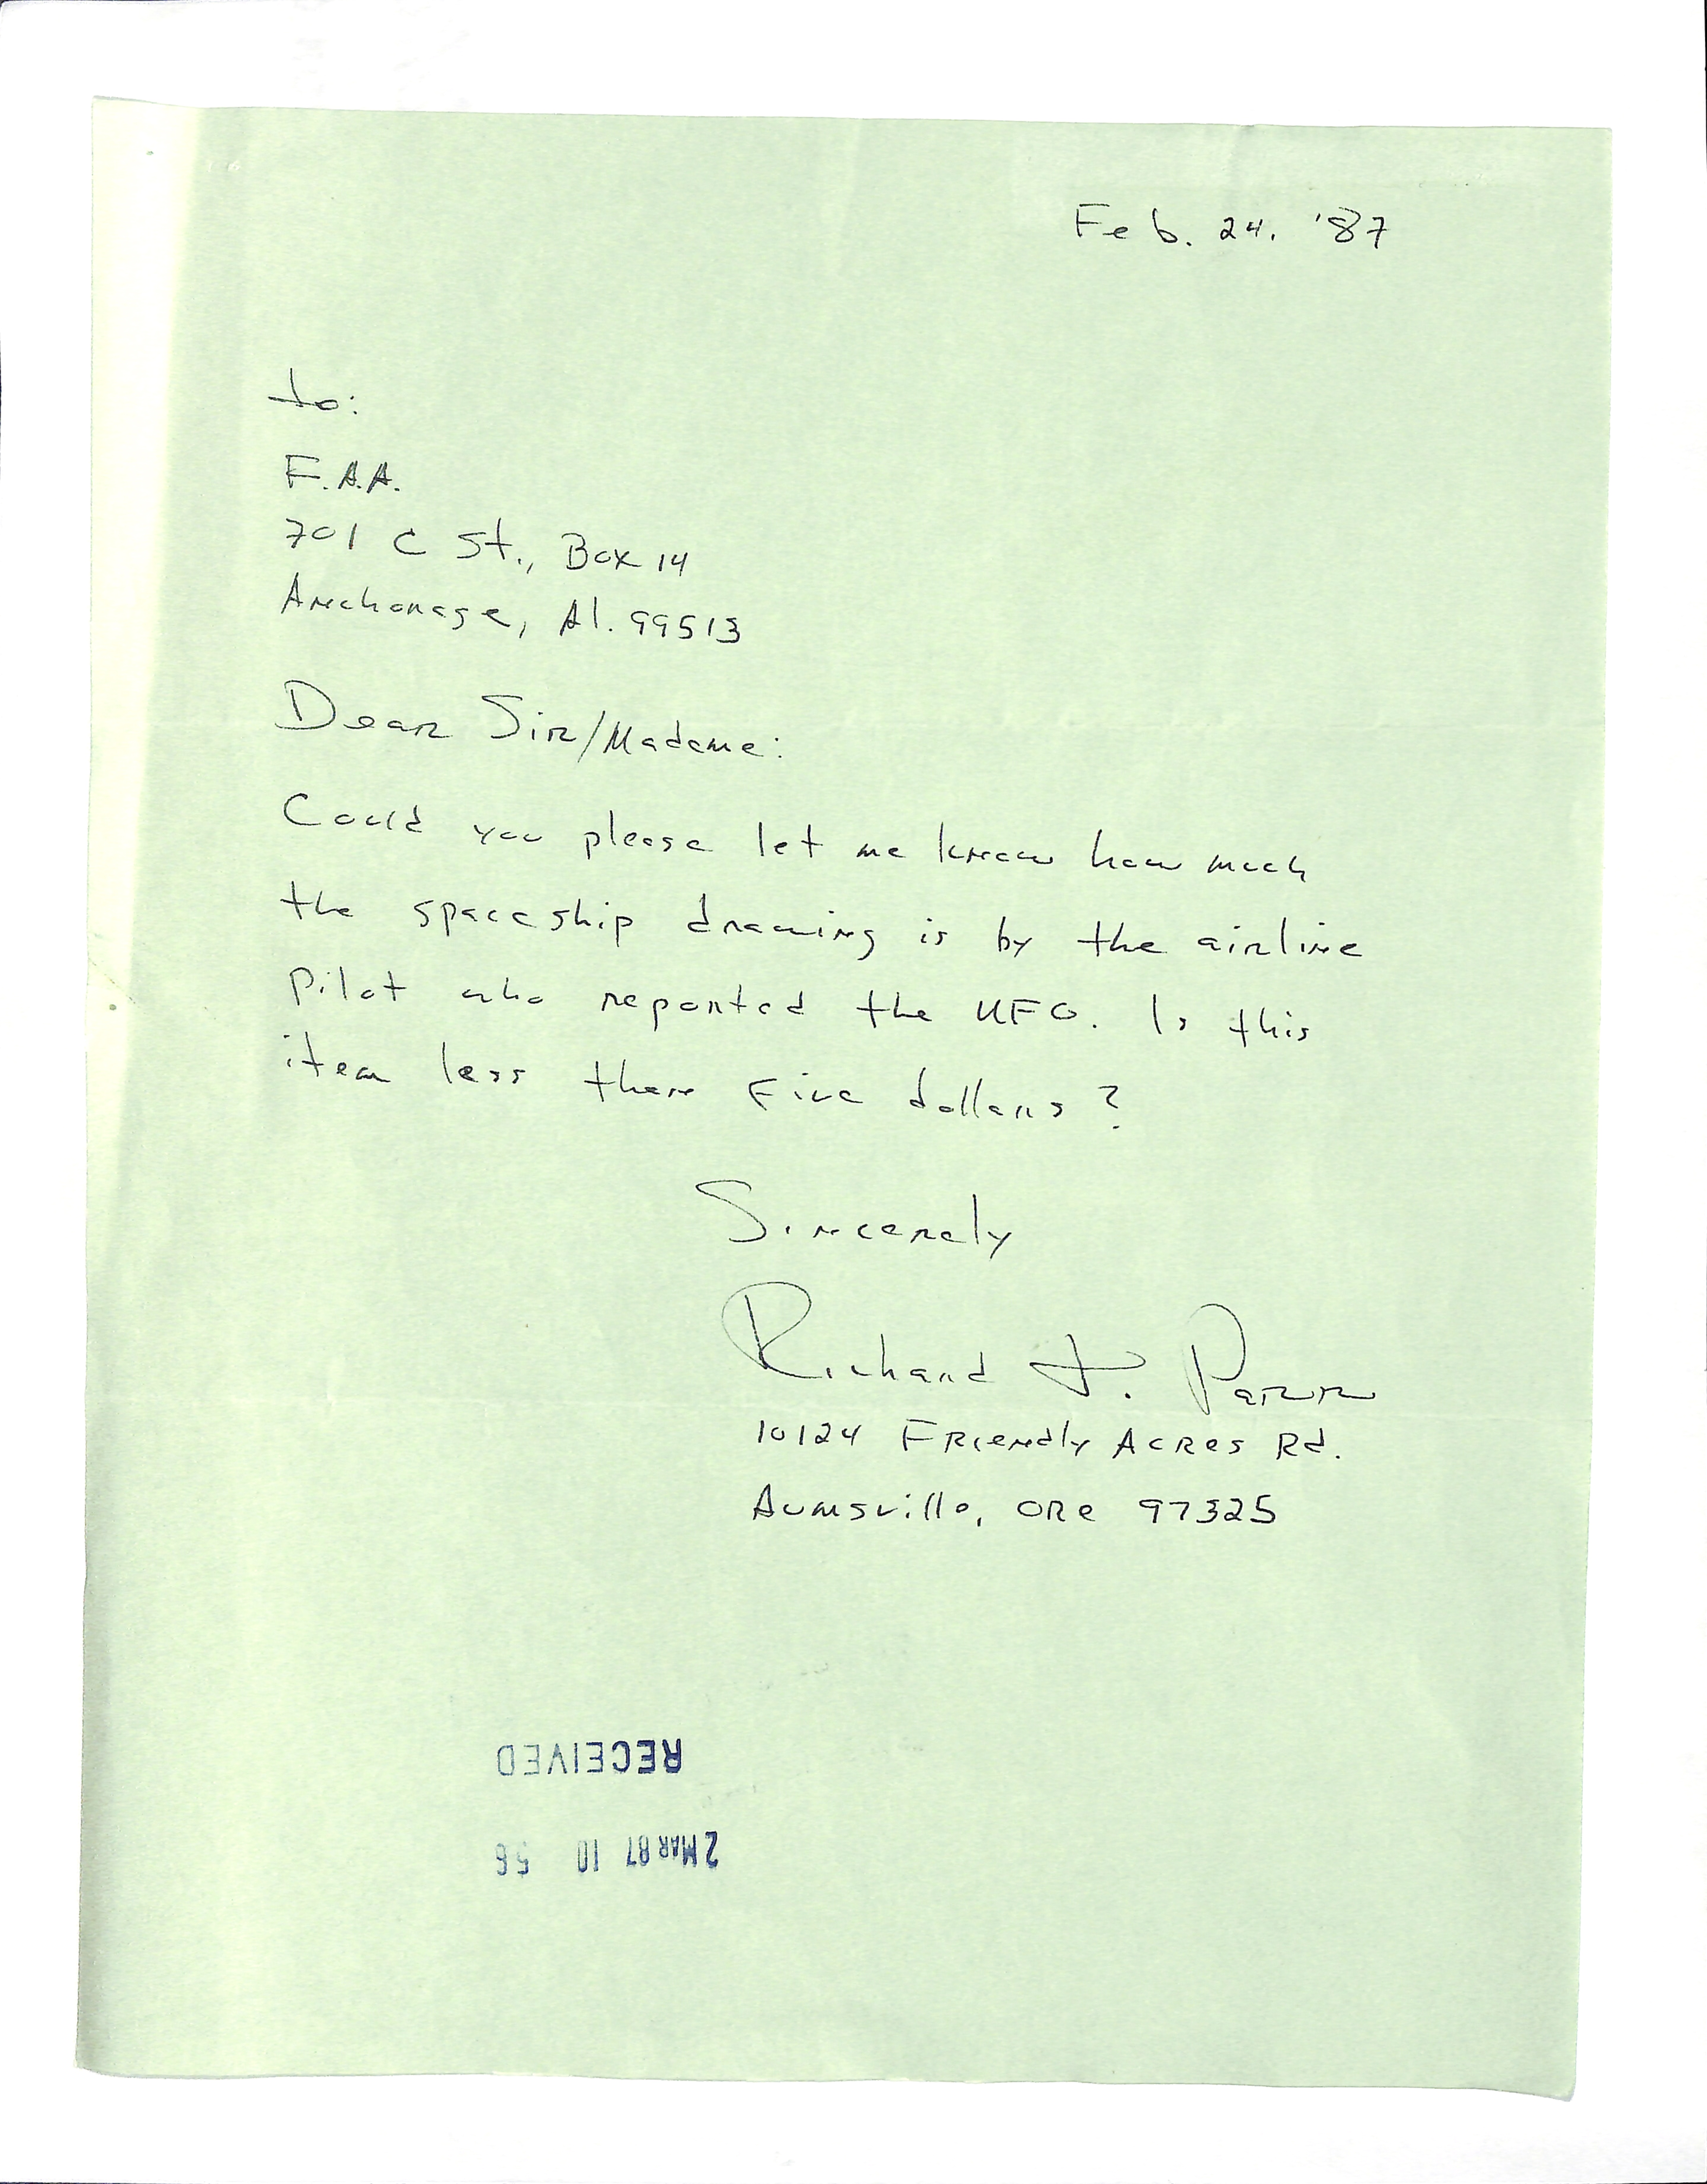 Feb. 24. '87
to:
F.A.A.
701 C St., Box 14
Anchorage, Al. 99513
Dear Sir/Madame:
Could you please let me know how much
the spaceship drawing is by the airline
pilot who reported the UFO. Is this
item less then five dollars?
Sincerely
Richard J. Parr
10124 Friendly Acres Rd.
Aumsville, Ore 97325
RECEIVED
2 MAR 87 10 56